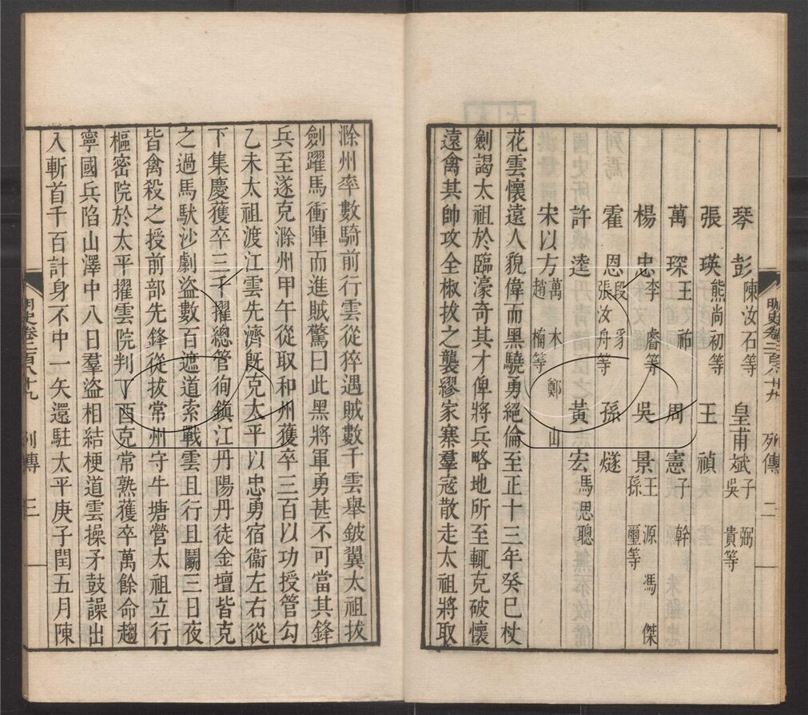 琴彭 陳汝石等 皇甫斌 子弼 吳貴等
張瑛 熊尚初等 王禎
萬琛 王祐 周憲 子幹
楊忠 李睿等 吳景 王源 馮傑 孫璽等
霍恩 段豸 張汝舟等 孫燧
許逵 黃宏 馬思聰
宋以方 萬木 鄭山 趙楠等
花雲懷遠人貌偉而黑驍勇絕倫至正十三年癸巳杖
劍謁太祖於臨濠奇其才俾將兵略地所至輒克破懷
遠禽其帥攻全椒拔之襲繆家寨羣寇散走太祖將取
滁州率數騎前行雲從猝遇賊數千雲舉鈹翼太祖拔
劍躍馬衝陣而進賊驚曰此黑將軍勇甚不可當其鋒
兵至遂克滁州甲午從取和州獲卒三百以功授管勾
乙未太祖渡江雲先濟既克太平以忠勇宿衞左右從
下集慶獲卒三千擢總管徇鎮江丹陽丹徒金壇皆克
之過馬馱沙劇盜數百遮道索戰雲且行且鬭三日夜
皆禽殺之授前部先鋒從拔常州守牛塘營太祖立行
樞密院於太平擢雲院判丁酉克常熟獲卒萬餘命趨
寧國兵陷山澤中八日羣盜相結梗道雲操矛鼓譟出
入斬首千百計身不中一矢還駐太平庚子閏五月陳
明史卷二百八十九 列傳 二
明史卷二百八十九 列傳 三